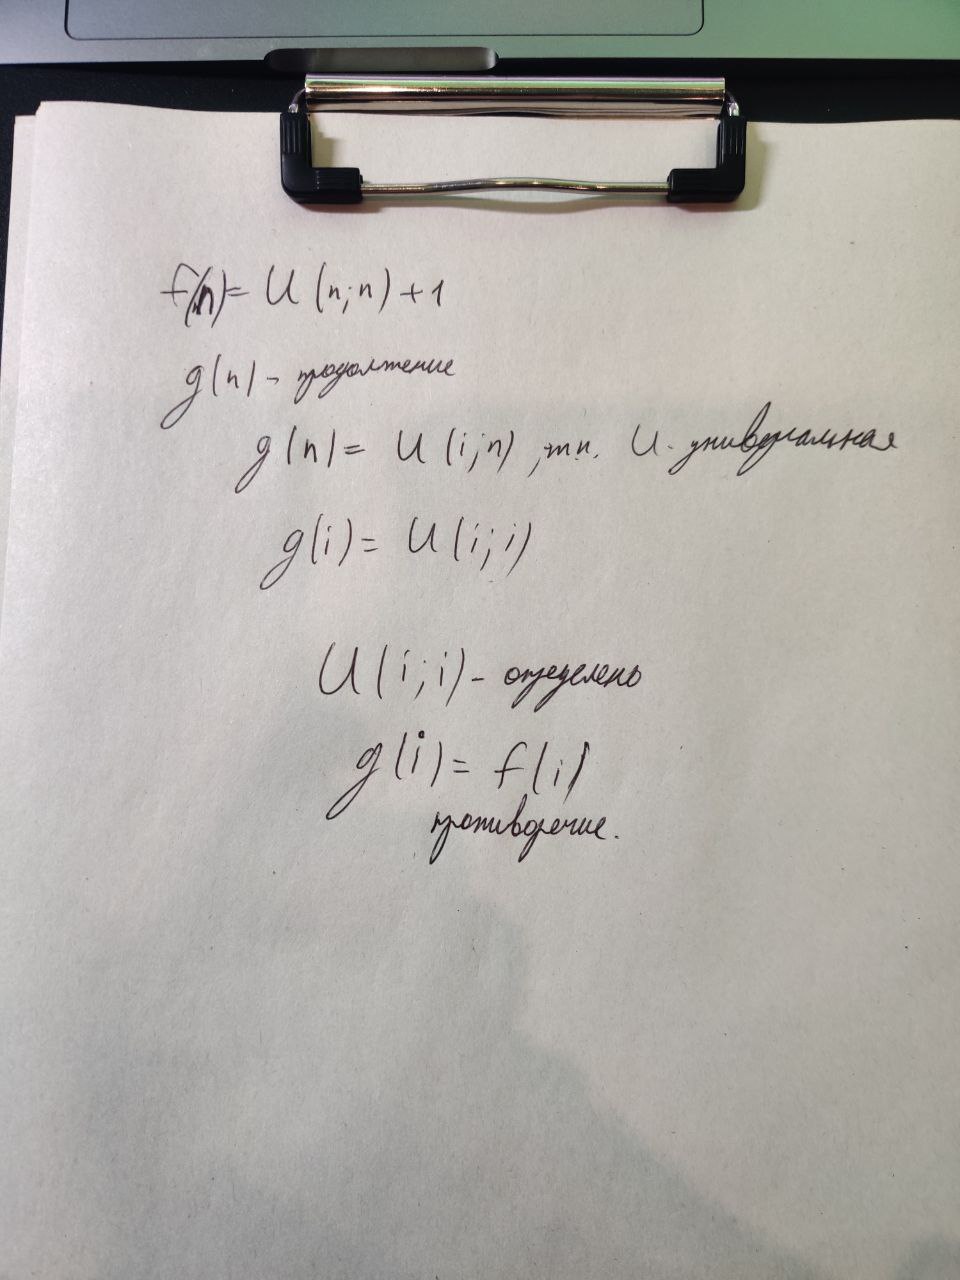 f(n) = U(n;n) + 1
g(n) - продолжение
g(n) = U(i;n), т.к. U - универсальная
g(i) = U(i;i)
U(i;i) - определено
g(i) = f(i)
противоречие.